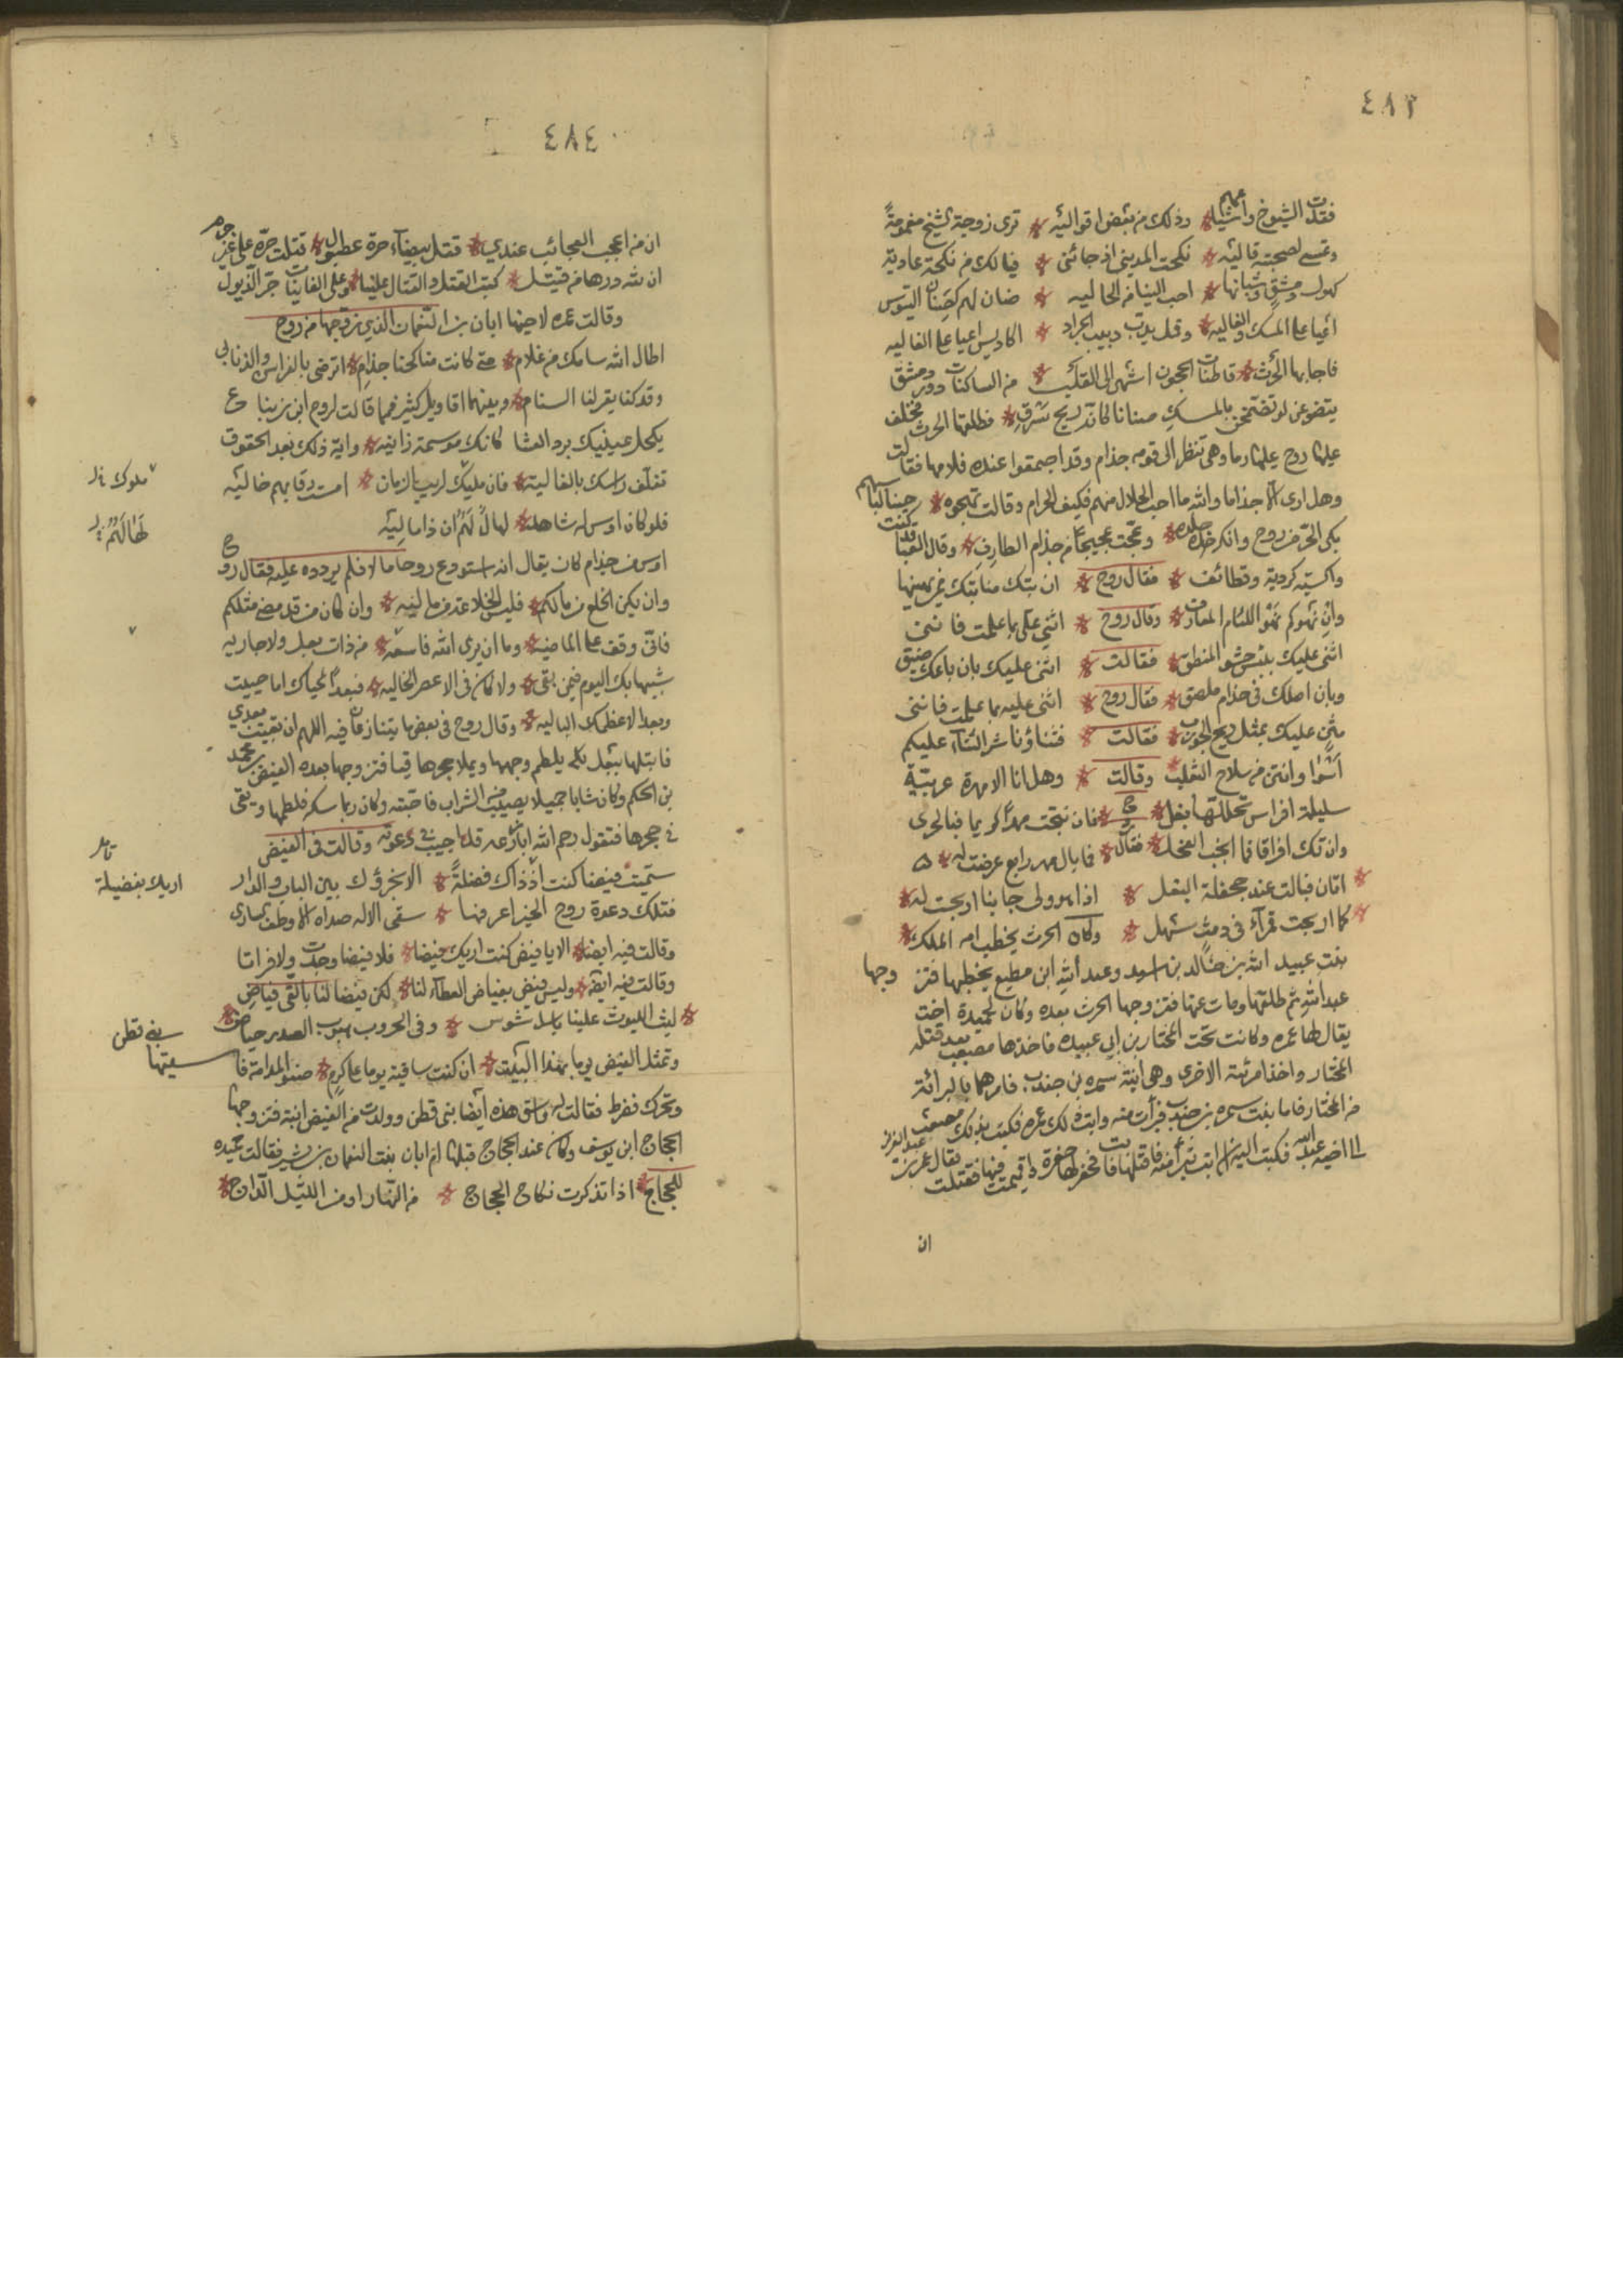 ٤٨٣
فقدت الشيوخ واشياعهم * وذلك من بعض اقواليه * ترى زوجة الشيخ مغمومة
وتمسى لصحبته قاليه * نكحت المدينى اذ جائنى * فيا لك من نكحة غاوية
كهول دمشق وشبانها * احب الينا من الجاليه * صنان لهم كصنان التيوس
اعيا على المسك والغاليه * وقمل يدب دبيب الجراد * اكاريس اعيا على الفاليه
فاجابها الحرث * قاطنات الحجون اشهى الى القلب * من الساكنات دور دمشق
يتضوعن لو تضمخن بالمسك صنانا كانه ريح مرق * فطلقها الحرث فخلف
عليها روح عليها رما وهى تنظر الى قومه جذام وقد اجتمعوا عنده فلامها فقالت
وهل ارى الا جذاما والله ما احب الحلال منهم فكيف الحرام وقالت تهجوه *
بكى الخز من روح وانكر جلده * وعجت عجيجا من جذام المطارف * وقال العبا قد كنت حينا لباسهم
واكسية كردية وقطائف * فقال روح * ان تبك منا تبك ممن يهينها
وان تهوكم تهو اللئام المقارف * وقال روح * اثنى على بما علمت فاننى
اثنى عليك بئس حشو المنطق * فقالت * اثنى عليك بان باعك ضيق
وبان اصلك فى جذام ملصق * فقال روح * اثنى عليه بما علمت فاننى
مثن عليك بمثل ريح الجورب * فقالت * فثناؤنا شر الثناء عليكم
اسوا وانتن من سلاح الثعلب * وقالت * وهل انا الا مهرة عربية
سليلة افراس تحللها بغل * فان نتجت مهرا كريما فبالحرى
وان تك اقرافا فما انجب الفحل * فقال * فما بال مهر رابع عرضت له *
اتان فبالت عند جحفلة البغل * اذا هو ولى جانبا اربجت له *
كما اربجت قمراء فى دمث سهل * وكان الحرث يخطب امه الملك *
بنت عبيد الله بن خالد بن اسيد وعبد الله ابن مطيع يخطبها فتزوجها
عبد الله ثم طلقها ومات عنها فتزوجها الحرث بعده وكان لحميدة اخت
يقال لها عمره وكانت تحت المختار بن ابى عبيده فاخذها مصعب بعد قتله
المختار واخذ امرئته الاخرى وهى ابنة سمره بن جندب فامرهما بالبرائة
من المختار فاما بنت سمره بن جندب فبرأت منه وابت ذلك عمره فكتب بذلك مصعب
الى اخيه عبد الله فكتب اليه ان ابت تبرأ منه فاقتلها فابت فحفر لها حفرة واقيمت فيها فقتلت
ان
٤٨٤
ان من اعجب العجائب عندي * قتل بيضاء حرة عطبول * قتلت حرة على غير جرم
ان لله درها من قتيل * كتب القتل والقتال علينا * وعلى الغانيات جر الذيول
وقالت عمره لاخيها ابان بن النعمان الذي زوجها من روح
اطال الله شامك من غلام * متى كانت مناكحنا جذام * اترضى بالفراسن والذنابى
وقد كنا يقر لنا السنام * وبينهما اقاويل كثير فمما قالت لروح ابن زنباع
يكحل عينيك برد العشا كانك مومسة زانيه * واية ذلك بعد الحقوق
تغلف راسك بالغالية * فان مليك لريب الزمان * امست رقابهم خاليه
ملوك خ ل
فلو كان اوس له شاهدا * لهال لهم ان ذا ماليه
اوس من جذام كان يقال انه استودع روحا مالا فلم يردده عليه فقال روح
وان يكن الخلع من مالكم * فليس الخلاعة من ماليه * وان كان من قد مضى مثلكم
فاف وقف على الماضيه * وما ان يرى الله فاسقه * من ذات بعل ولا جاريه
شبيها بك اليوم فيمن بقى * ولا كان فى الاعصر الخاليه * فبعدا لمحياك اما حييت
وبعدا لاعظمك الباليه * وقال روح فى بعض ما يتنازعان فيه اللهم ان بقيت بعدي
فابتلها ببعل يلطم وجهها ويملا حجرها قيا فتزوجها بعده الفيض بن محمد
بن الحكم وكان شابا جميلا يصيب من الشراب فاحبته وكان ربما سكر فلطمها ويقئ
فى حجرها فتقول رحم الله ابا زرعه قد اجيب فى دعوته وقالت فى الفيض
سميت فيضا كنت اذ ذاك فضلة * الا بخرؤك بين الباب والدار
اريك بفضيلة
فتلك دعوة روح الخير اعرفها * سقى الاله صداه الاوطف السارى
وقالت فيه ايضا * الا يا فيض كنت اريك فيضا * فلا فيضا وجدت ولا فراتا
وقالت فيه ايضا * وليس فيض بفياض العطاء لنا * لكن فيضا لنا بالقئ فياض
* ليث الليوث علينا باسل شوس * وفى الحروب هيوب الصدر حياض *
وتمثل الفيض يوما بهذا البيت * ان كنت ساقية يوما على كرم * صفو المدامة فاسقيها
بنى قطن
وتحرك فضرط فقالت له واسق هذه ايضا بنى قطن وولدت من الفيض ابنة فتزوجها
الحجاج ابن يوسف وكان عند الحجاج قبلها ام ابان بنت النعمان بن بشير فقالت حميده
للحجاج * اذا تذكرت نكاح الحجاج * من النهار او من الليل الداج *